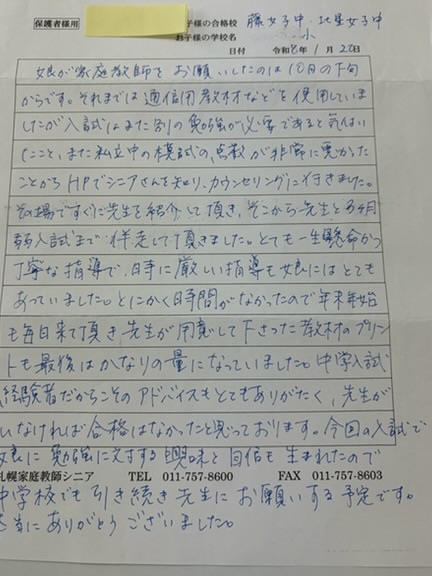 保護者様用
お子様の合格校 藤女子中・北星女子中
お子様の学校名 小
日付 令和6年1月20日
娘が家庭教師をお願いしたのは10月の下旬
からです。それまでは通信用教材などを使用していま
したが入試はまた別の勉強が必要であると気付い
たこと、また私立中の模試の点数が非常に悪かった
ことからHPでシニアさんを知り、カウンセリングに行きました。
その場ですぐに先生を紹介して頂き、そこから先生と3ヶ月
弱入試まで伴走して頂きました。とても一生懸命かつ
丁寧な指導で、時に厳しい指導も娘にはとても
あっていました。とにかく時間がなかったので年末年始
も毎日来て頂き、先生が用意して下さった教材のプリン
トも最後はかなりの量になっていました。中学入試
経験者だからこそのアドバイスもとてもありがたく、先生が
いなければ合格はなかったと思っております。今回の入試で
娘に勉強に対する興味と自信も生まれたので
札幌家庭教師シニア TEL 011-757-8600 FAX 011-757-8603
中学校でも引き続き先生にお願いする予定です。
本当にありがとうございました。